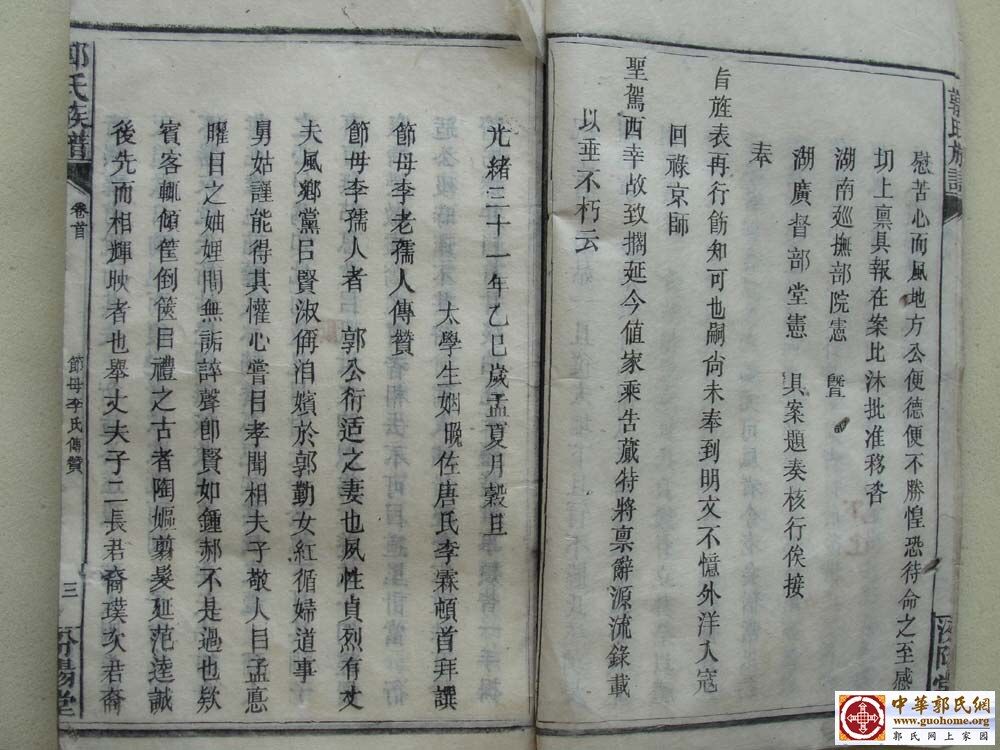 郭氏族譜
慰苦心而風地方公便德便不勝惶恐待命之至感
切上禀具報在案比沐批准移咨
湖南廵撫部院憲 暨
湖廣督部堂憲 具案題奏核行俟接
奉
旨旌表再行飭知可也嗣尙未奉到明文不憶外洋入寇
回祿京師
聖駕西幸故致擱延今值家乘吿蕆特將禀辭源流錄載
以垂不朽云
光緒三十一年乙巳歲孟夏月穀旦
太學生姻晚佐唐氏李霖頓首拜譔
節母李老孺人傳贊
節母李孺人者 郭公衍适之妻也夙性貞烈有丈
夫風鄉黨㠯賢淑偁洎嬪於郭勤女紅循婦道事
舅姑謹能得其懽心嘗㠯孝聞相夫子敬人㠯孟悳
矅目之妯娌間無詬誶聲卽賢如鍾郝不是過也欵
賓客輒傾筐倒篋㠯禮之古者陶嫗翦髮延范逵誠
後先而相輝映者也舉丈夫子二長君裔璞次君裔
郭氏族譜
卷首
節母李氏傳贊
三
汾陽堂
中華郭氏網
www.guohome.org
郭氏网上家園